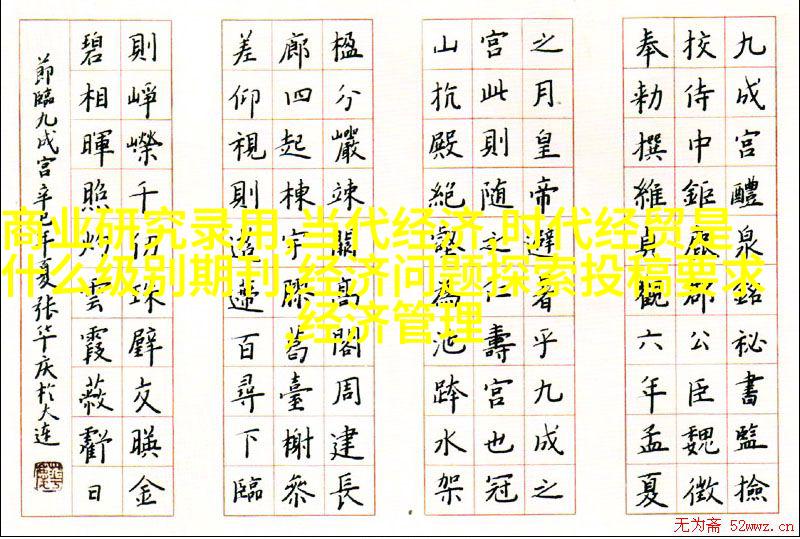 九成宮醴泉銘祕書監撿
挍侍中鉅鹿郡公臣魏徵
奉勑撰維貞觀六年孟夏
之月皇帝避暑乎九成之
宮此則随之仁壽宮也冠
山抗殿絕壑為池跨水架
楹分巖竦闕高閣周建長
廊四起棟宇膠葛臺榭參
差仰視則迢遰百尋下臨
則崢嶸千仞珠璧交暎金
碧相暉照灼雲霞蔽虧日
節臨九成宮辛巳年夏張华庆於大连
商业研究录用,当代经济,时代经贸是
什么级别期刊,经济问题探索投稿要求
,经济管理
无为斋 52wwz.cn